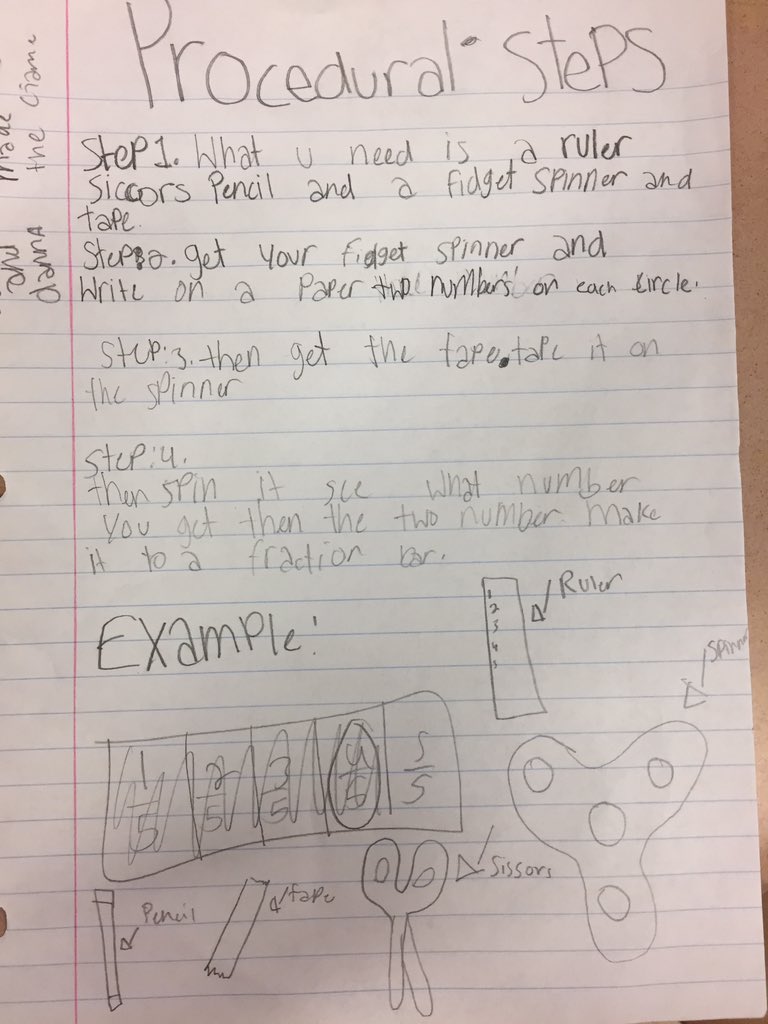 Procedural Steps
Step 1. What u need is a ruler
siccors Pencil and a fidget spinner and
tape.
Step:2. get your fidget spinner and
Write on a Paper two numbers on each circle.
Step:3. then get the tape. tape it on
the spinner
Step:4.
then spin it see what number
You get then the two number make
it to a fraction bar.
Example:
Ruler
1
2
3
4
5
1/5 2/5 3/5 5/5
Sissors
Pencil
tape
made the Game
and danna